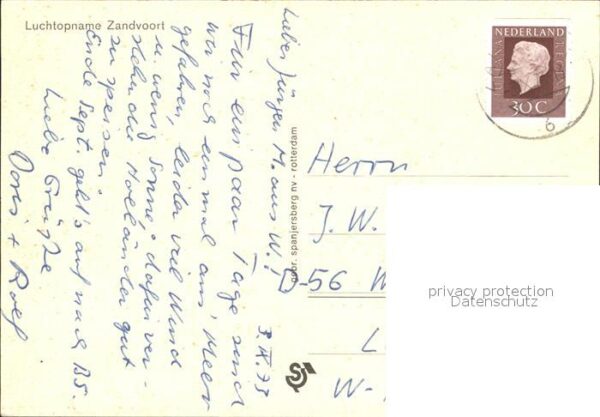 Luchtopname Zandvoort
NEDERLAND
JULIANA REGINA
30 C
3. IX. 73
Lieber Jürgen M. aus W.!
Für ein paar Tage sind
wir noch einmal ans Meer
gefahren, leider viel Wind
u. wenig Sonne; dafür ver-
stehn die Holländer gut
zu speisen!
Ende Sept. geht's auf nach
Liebe Grüße
Doris + Rolf
spanjersberg nv - rotterdam
Herrn
J. W.
D-56 W
W-
privacy protection
Datenschutz